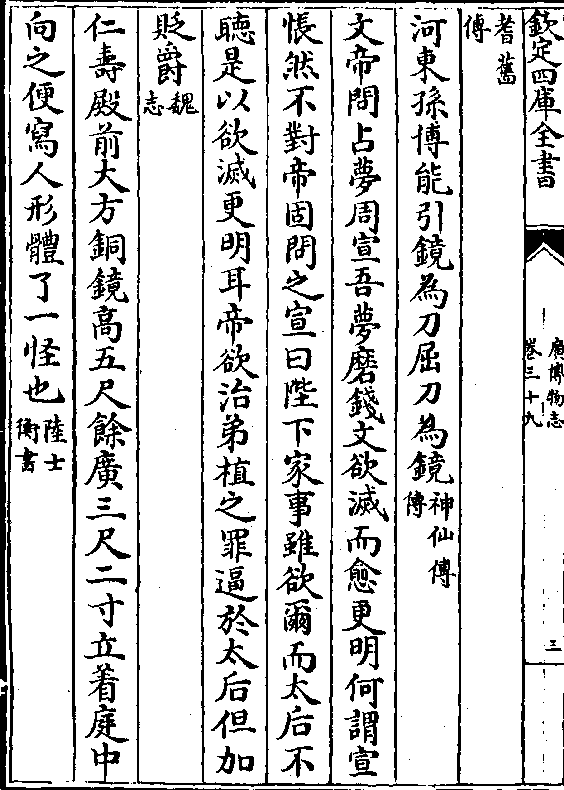 欽定四庫全書
廣博物志
卷三十九
三
耆舊
傳
河東孫博能引鏡為刀屈刀為鏡神仙傳
傳
文帝問占夢周宣吾夢磨錢文欲滅而愈更明何謂宣
悵然不對帝固問之宣曰陛下家事雖欲爾而太后不
聽是以欲滅更明耳帝欲治弟植之罪逼於太后但加
貶爵魏
志
仁壽殿前大方銅鏡高五尺餘廣三尺二寸立着庭中
向之便寫人形體了一怪也陸士
衡書